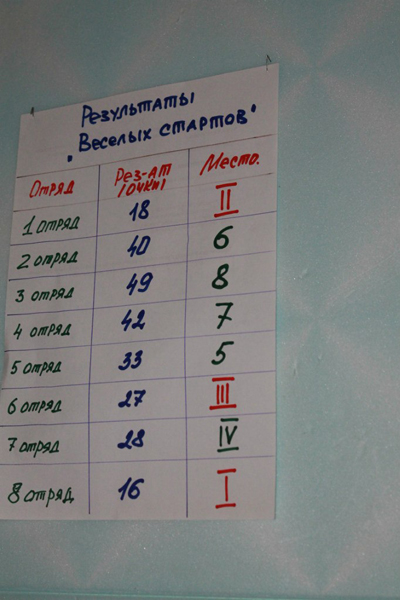 Результаты
„Веселых стартов"
Отряд Рез-ат Место.
(очки)
1 отряд 18 II
2 отряд 40 6
3 отряд 49 8
4 отряд 42 7
5 отряд 33 5
6 отряд 27 III
7 отряд 28 IV
8 отряд 16 I